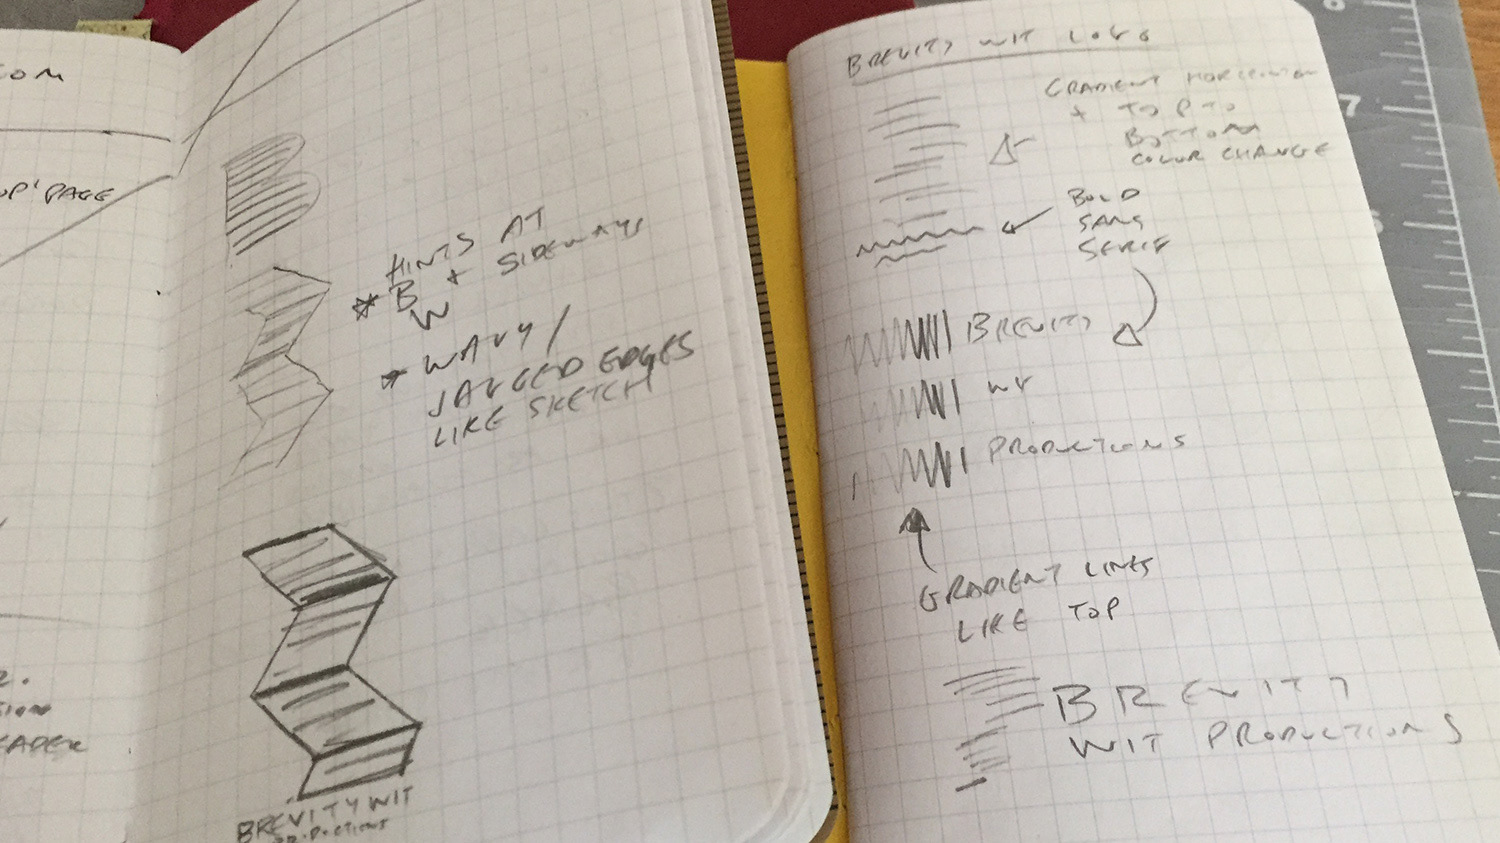 COM
OP' PAGE
HINTS AT
* B + SIDEWAYS
W
* WAVY /
JAGGED EDGES
LIKE SKETCH
BREVITY WIT
PRODUCTIONS
BREVITY WIT LOGO
GRADIENT HORIZONTAL
+ TOP TO
BOTTOM
COLOR CHANGE
BOLD
SANS
SERIF
BREVITY
WIT
PRODUCTIONS
GRADIENT LINES
LIKE TOP
BREVITY
WIT PRODUCTIONS
7